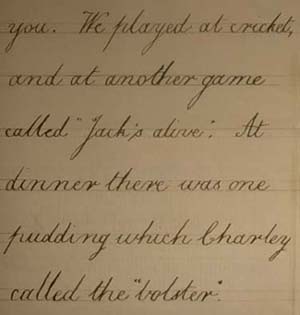 you. We played at cricket,
and at another game
called "Jack's alive". At
dinner there was one
pudding which Charley
called the "bolster".